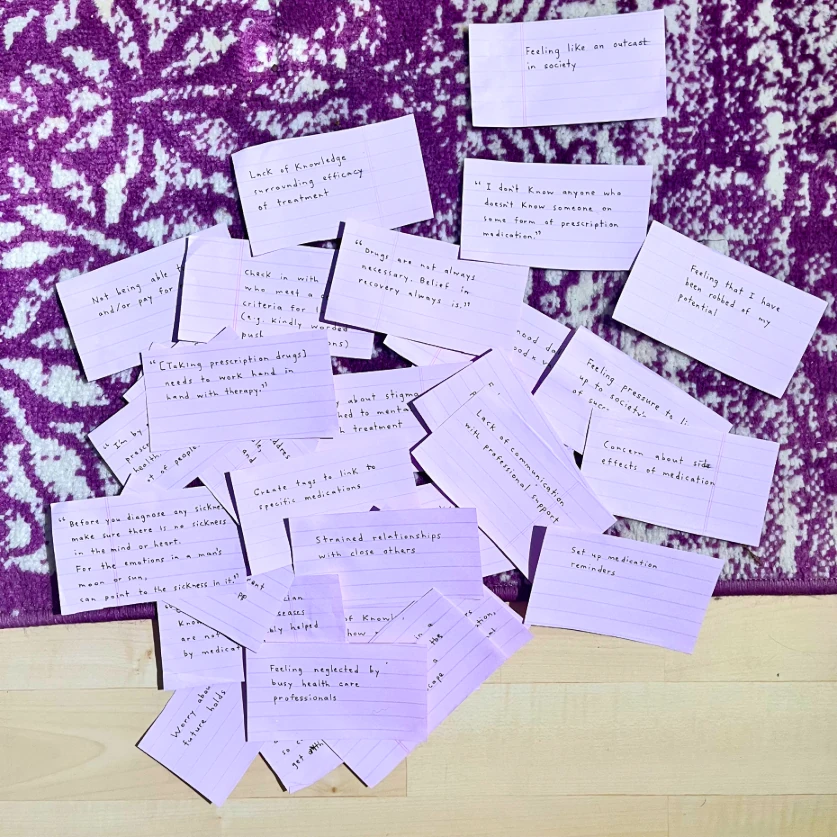 Feeling like an outcast
in society
Lack of Knowledge
surrounding efficacy
of treatment
"I don't Know anyone who
doesn't Know someone on
some form of prescription
medication."
Not being able
and/or pay for
Check in with
who meet a
criteria for
(e.g. Kindly worded
push
"Drugs are not always
necessary. Belief in
recovery always is."
Feeling that I have
been robbed of my
potential
"[Taking prescription drugs]
needs to work hand in
hand with therapy."
Feeling pressure to
up to society's
of
about stigma
to
treatment
"I'm by
of people
and
Lack of communication
with professional support
Concern about side
effects of medication
Create tags to link to
specific medications
"Before you diagnose any sickness
make sure there is no sickness
in the mind or heart.
For the emotions in a man's
moon or sun,
can point to the sickness in it."
Strained relationships
with close others
Set up medication
reminders
helped
are not
by
of
how
in a
the
a
Feeling neglected by
busy health care
professionals
Worry about
future holds
so
get